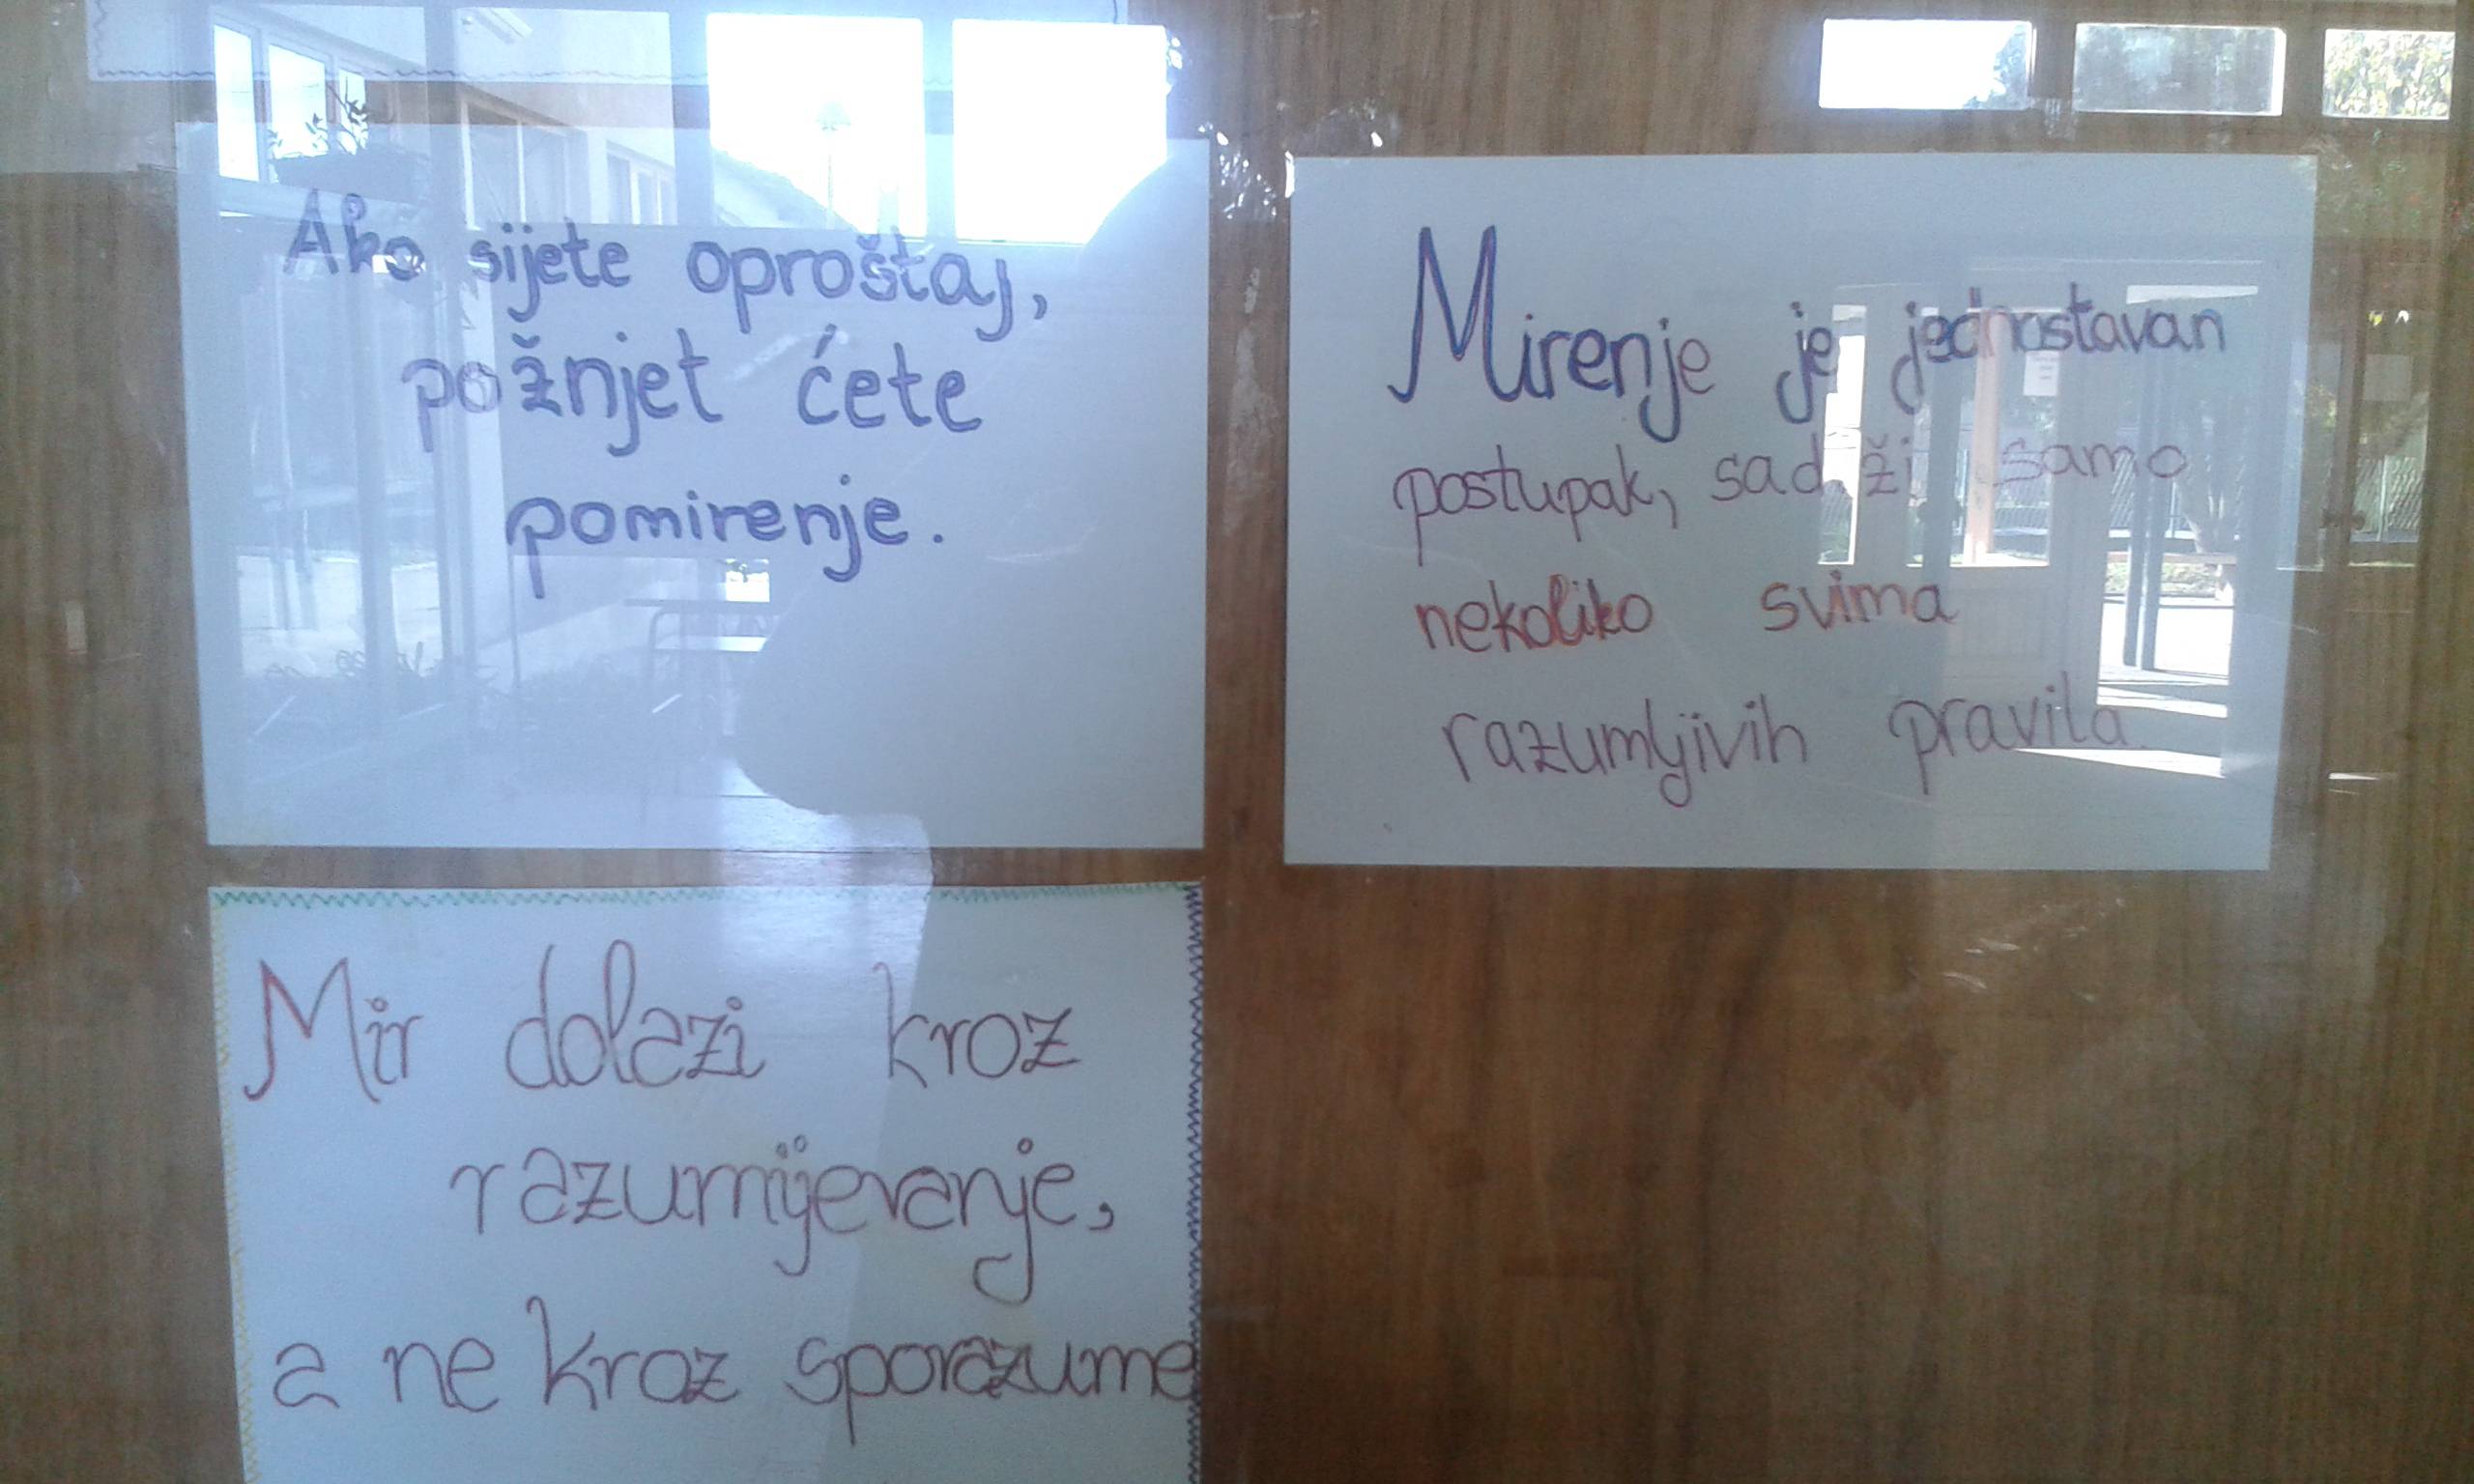 Ako sijete oproštaj,
požnjet ćete
pomirenje.
Mirenje je jednostavan
postupak, sadrži samo
nekoliko svima
razumljivih pravila.
Mir dolazi kroz
razumijevanje,
a ne kroz sporazume